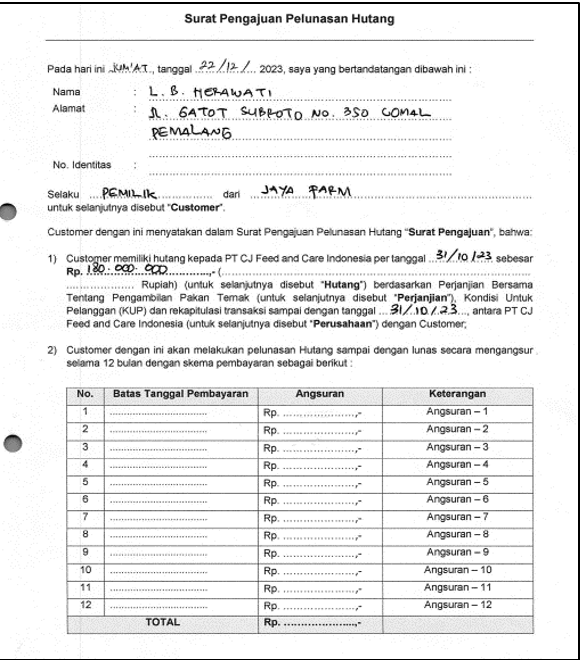 Surat Pengajuan Pelunasan Hutang
Pada hari ini JUM'AT, tanggal 22/12/... 2023, saya yang bertandatangan dibawah ini :
Nama : L. B. HERAWATI
Alamat : JL. GATOT SUBROTO NO. 350 COMAL
PEMALANG
No. Identitas :
Selaku PEMILIK dari JAYA FARM
untuk selanjutnya disebut "Customer".
Customer dengan ini menyatakan dalam Surat Pengajuan Pelunasan Hutang "Surat Pengajuan", bahwa:
1) Customer memiliki hutang kepada PT CJ Feed and Care Indonesia per tanggal 31/10/23 sebesar
Rp. 180.000.000,- (....................
.................... Rupiah) (untuk selanjutnya disebut "Hutang") berdasarkan Perjanjian Bersama
Tentang Pengambilan Pakan Ternak (untuk selanjutnya disebut "Perjanjian"), Kondisi Untuk
Pelanggan (KUP) dan rekapitulasi transaksi sampai dengan tanggal ...31/10/23..., antara PT CJ
Feed and Care Indonesia (untuk selanjutnya disebut "Perusahaan") dengan Customer;
2) Customer dengan ini akan melakukan pelunasan Hutang sampai dengan lunas secara mengangsur
selama 12 bulan dengan skema pembayaran sebagai berikut :
No. Batas Tanggal Pembayaran Angsuran Keterangan
1 .................... Rp. ....................,- Angsuran – 1
2 .................... Rp. ....................,- Angsuran – 2
3 .................... Rp. ....................,- Angsuran – 3
4 .................... Rp. ....................,- Angsuran – 4
5 .................... Rp. ....................,- Angsuran – 5
6 .................... Rp. ....................,- Angsuran – 6
7 .................... Rp. ....................,- Angsuran – 7
8 .................... Rp. ....................,- Angsuran – 8
9 .................... Rp. ....................,- Angsuran – 9
10 .................... Rp. ....................,- Angsuran – 10
11 .................... Rp. ....................,- Angsuran – 11
12 .................... Rp. ....................,- Angsuran – 12
TOTAL Rp. ....................,-